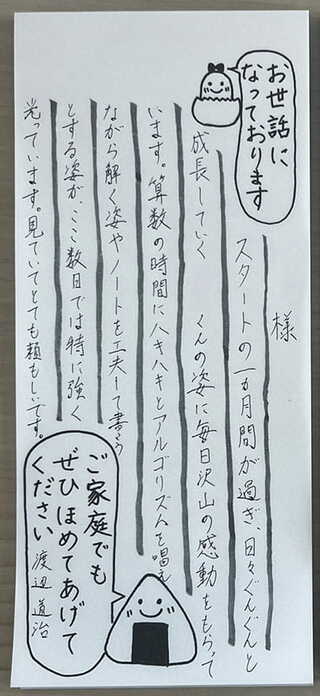 お世話に
なっております
様
スタートの一ヵ月間が過ぎ、日々ぐんぐんと
成長していく くんの姿に毎日沢山の感動をもらって
います。算数の時間にハキハキとアルゴリズムを唱え
ながら解く姿やノートを工夫して書こう
とする姿が、ここ数日では特に強く
光っています。見ていてとても頼もしいです。
ご家庭でも
ぜひほめてあげて
ください 渡辺道治